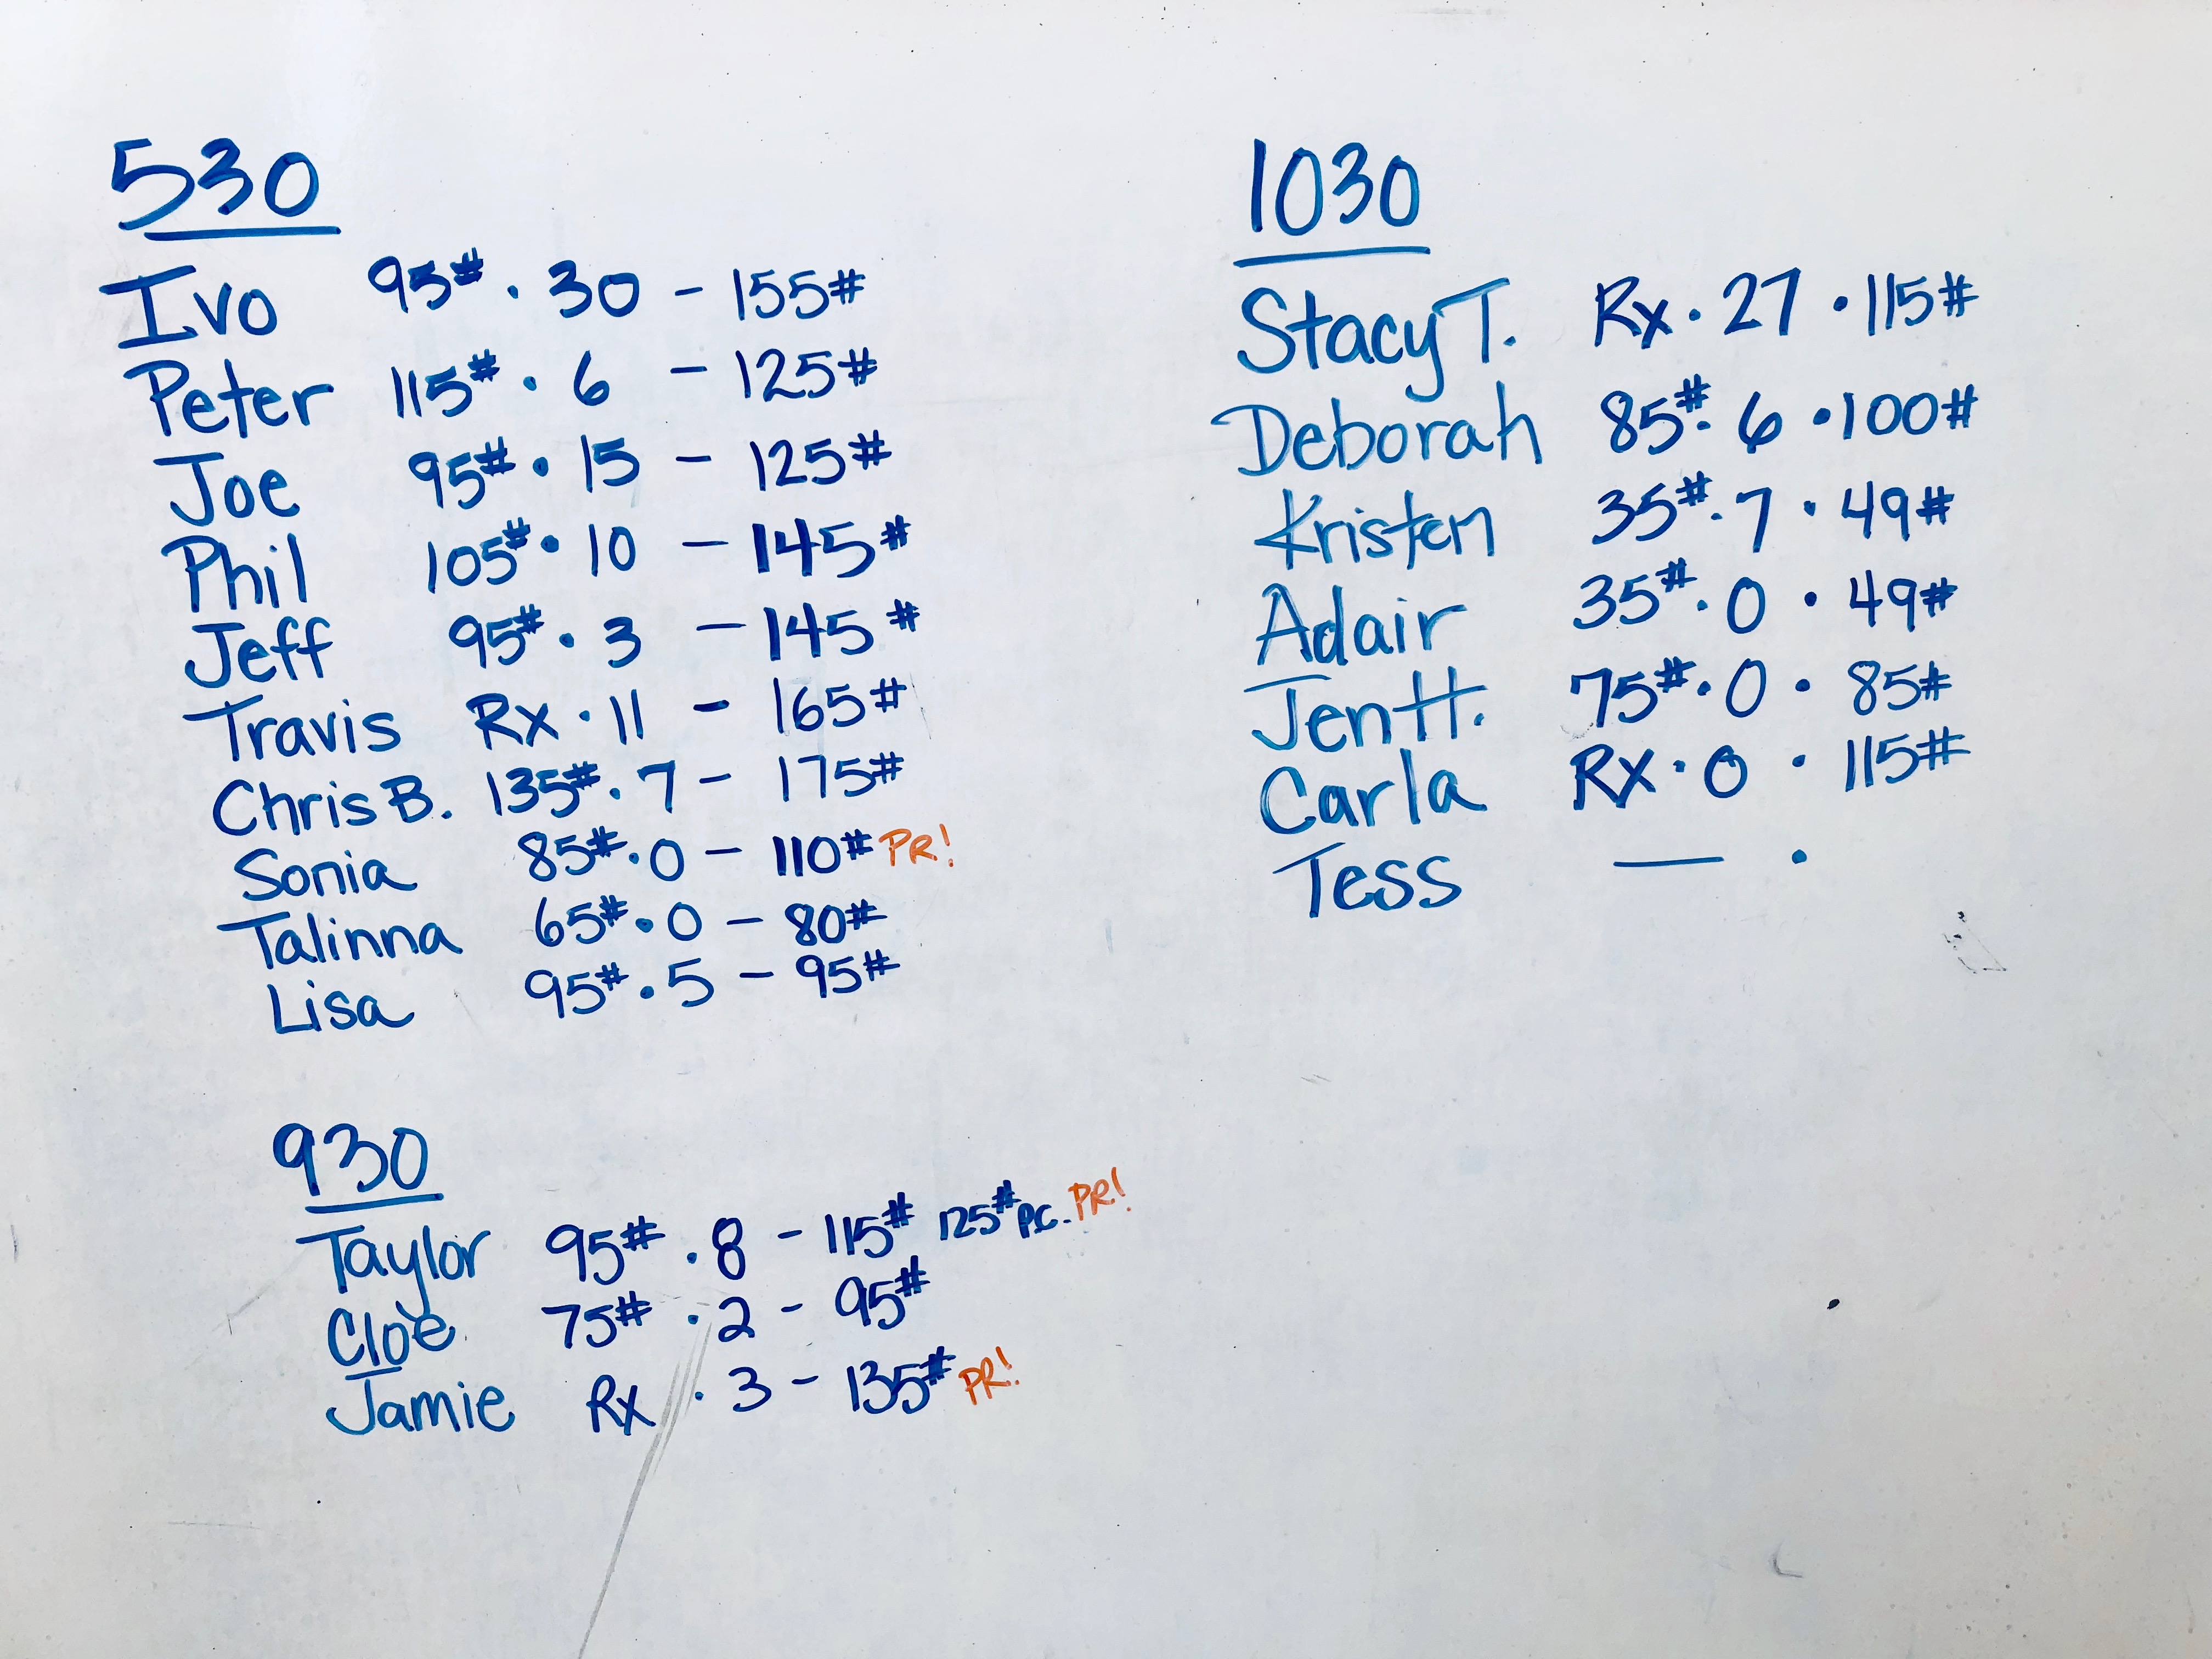 530
Ivo 95# · 30 - 155#
Peter 115# · 6 - 125#
Joe 95# · 15 - 125#
Phil 105# · 10 - 145#
Jeff 95# · 3 - 145#
Travis Rx · 11 - 165#
Chris B. 135# · 7 - 175#
Sonia 85# · 0 - 110# PR!
Talinna 65# · 0 - 80#
Lisa 95# · 5 - 95#
930
Taylor 95# · 8 - 115# 125# P.C. PR!
Cloe 75# · 2 - 95#
Jamie Rx · 3 - 135# PR!
1030
Stacy T. Rx · 27 · 115#
Deborah 85# · 6 · 100#
Kristen 35# · 7 · 49#
Adair 35# · 0 · 49#
Jen H. 75# · 0 · 85#
Carla Rx · 0 · 115#
Tess — ·